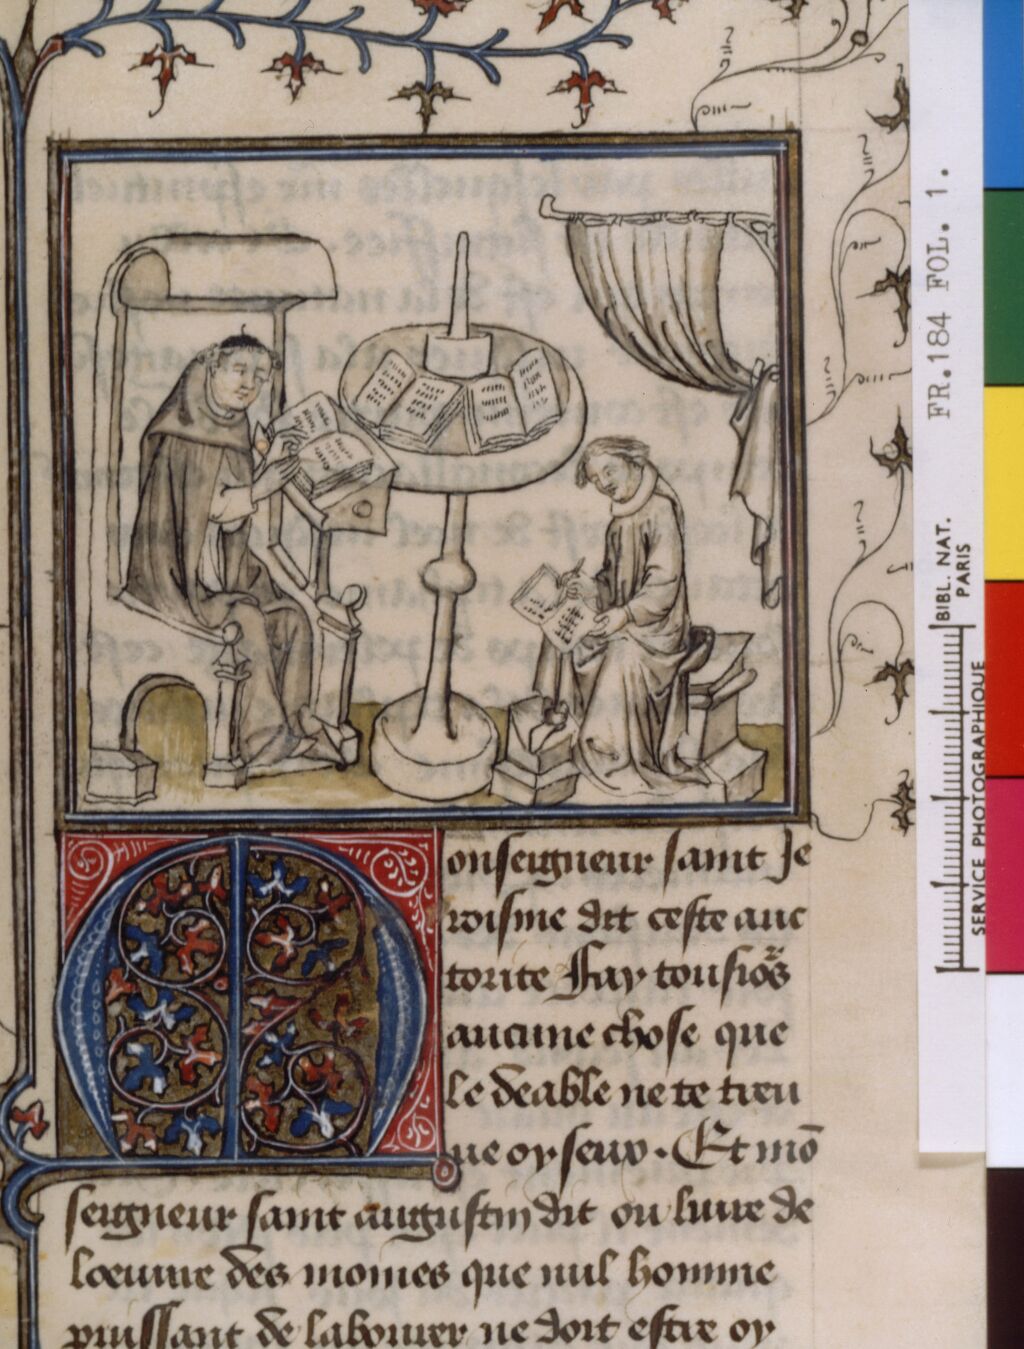 Monseigneur saint Je
roisme dit ceste auc
torite Fay tousiors
aucune chose que
le deable ne te treu
ue oyseux. Et mō
seigneur saint augustin dit ou liure de
loeuure des moines que nul homme
puissant de labourer ne doit estre oy
FR.184 FOL. 1.
BIBL. NAT.
PARIS
SERVICE PHOTOGRAPHIQUE